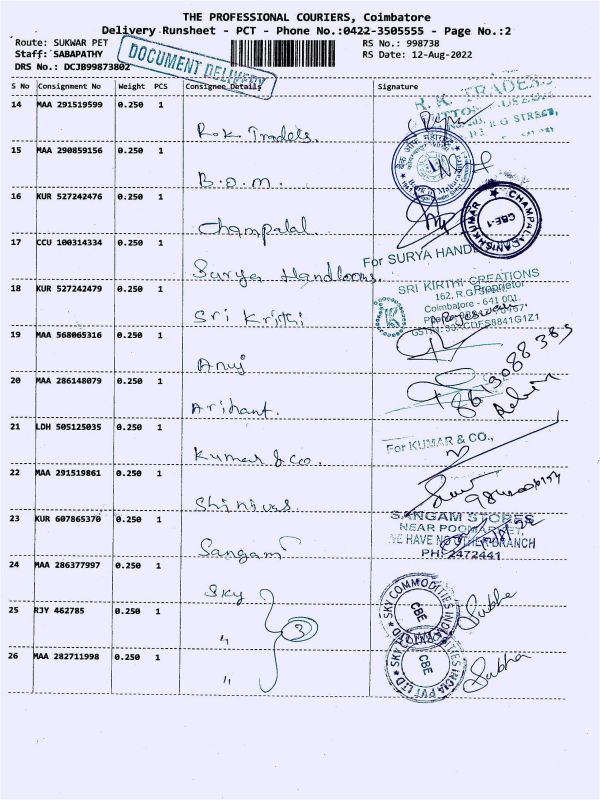 THE PROFESSIONAL COURIERS, Coimbatore
Delivery Runsheet - PCT - Phone No.:0422-3505555 - Page No.:2
Route: SUKWAR PET RS No.: 998738
Staff: SABAPATHY RS Date: 12-Aug-2022
DRS No.: DCJB99873802
DOCUMENT DELIVERY
S No Consignment No Weight PCS Consignee Details Signature
14 MAA 291519599 0.250 1
R.K Traders.
R.K. TRADERS
15 MAA 290859156 0.250 1
B.O.M.
16 KUR 527242476 0.250 1
Champalal
CHAMPALAL
CBE-1
17 CCU 100314334 0.250 1
Surya Handlooms.
For SURYA HAND
Proprietor
18 KUR 527242479 0.250 1
Sri Krithi
SRI KIRTHI CREATIONS
162, R.G. Street,
Coimbatore - 641 001.
19 MAA 568065316 0.250 1
Anuj
20 MAA 286148079 0.250 1
Arihant.
21 LDH 505125035 0.250 1
Kumar & Co.
For KUMAR & CO.,
22 MAA 291519861 0.250 1
Shinivas
23 KUR 607865370 0.250 1
Sangam
SANGAM STORES
NEAR POOMARKET,
WE HAVE NO OTHER BRANCH
PH: 2472441
24 MAA 286377997 0.250 1
Sky
SKY COMMODITIES INDIA PVT LTD
CBE
Subha
25 RJY 462785 0.250 1
"
3
26 MAA 282711998 0.250 1
"
SKY COMMODITIES INDIA PVT LTD
CBE
Subha